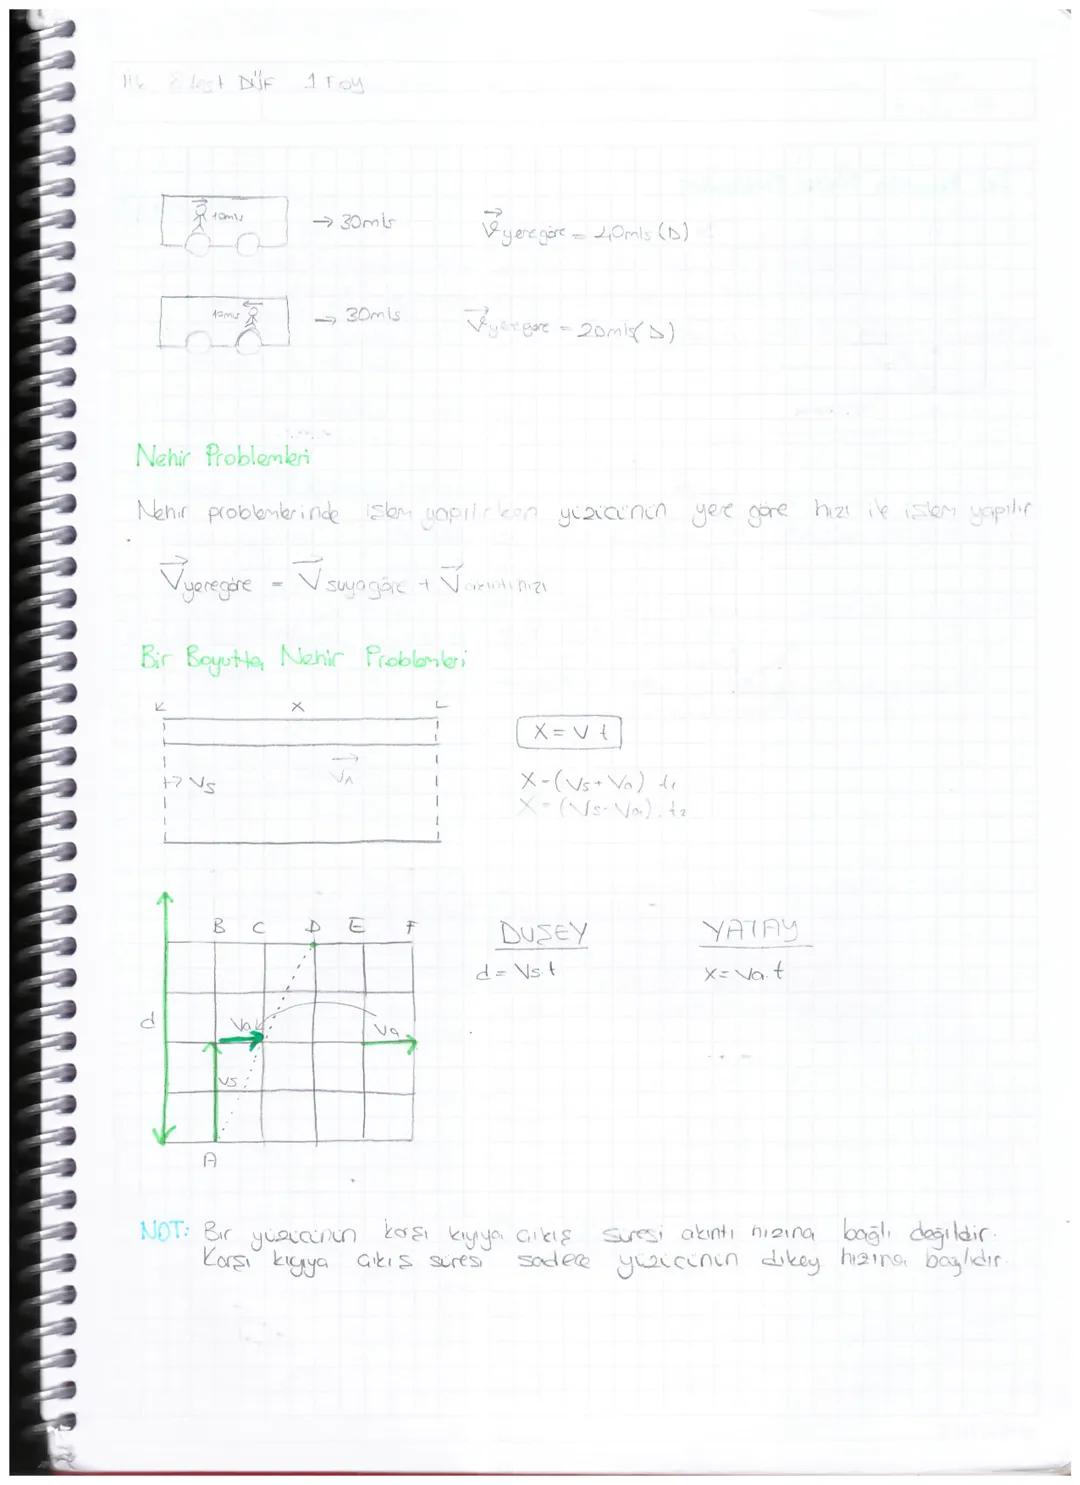 test DÜF 1 Foy
10m/s
→ 30m/s
V yere göre = 40m/s (D)
10m/s
→ 30m/s
V yere göre = 20m/s (D)
Nehir Problemleri
Nehir problemlerinde işlem yapılırken yüzücünün yere göre hızı ile işlem yapılır
V yere göre = V suya göre + V akıntı hızı
Bir Boyutta Nehir Problemleri
K X L
X = V t
→ Vs VA
X = (Vs + Va) t₁
X = (Vs - Va) . t₂
B C D E F
DÜŞEY YATAY
d = Vs.t X = Va.t
d
Va Va
Vs
A
NOT: Bir yüzücünün karşı kıyıya çıkış süresi akıntı hızına bağlı değildir.
Karşı kıyıya çıkış süresi sadece yüzücünün dikey hızına bağlıdır.